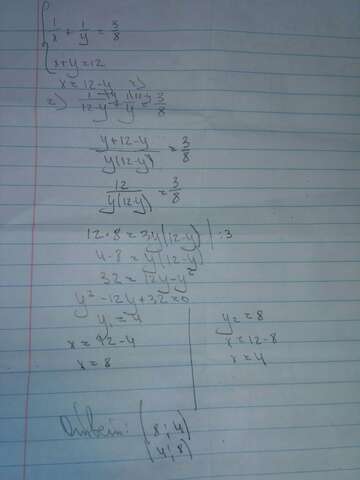 1/x + 1/y = 3/8
x+y=12
x = 12-y =>
=> 1/(12-y) + 1/y = 3/8
(y+12-y)/(y(12-y)) = 3/8
12/(y(12-y)) = 3/8
12·8 = 3y(12-y) | :3
4·8 = y(12-y)
32 = 12y-y²
y² -12y+32=0
y₁ = 4
x = 12-4
x = 8
y₂ = 8
x = 12-8
x = 4
(8; 4)
(4; 8)